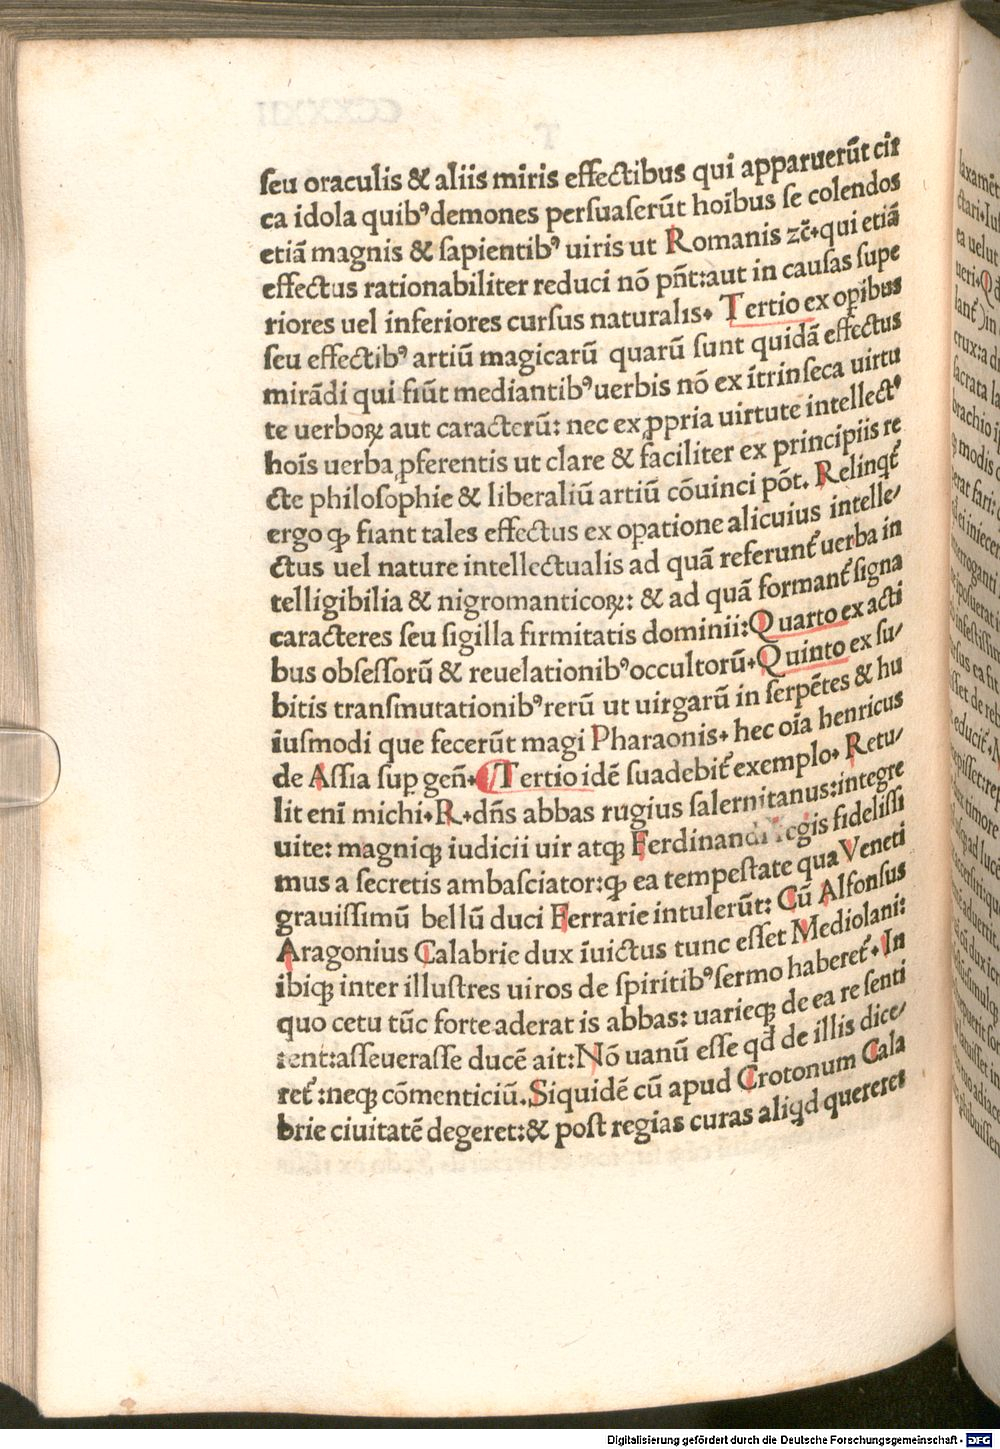 ſeu oraculis & aliis miris effectibus qui apparuerūt cir
ca idola quibꝰ demones perſuaſerūt hoībus ſe colendos
etiā magnis & ſapientibꝰ uiris ut Romanis zc̄. qui etiā
effectus rationabiliter reduci nō pn̄t: aut in cauſas ſupe
riores uel inferiores curſus naturalis. Tertio ex opībus
ſeu effectibꝰ artiū magicarū quarū ſunt quidā effectus
mirādi qui fiūt mediantibꝰ uerbis nō ex ītrinſeca uirtu
te uerboꝝ aut caracterū: nec ex ꝓpria uirtute intellectꝰ
hoīs uerba ꝓferentis ut clare & faciliter ex principiis re
cte philoſophie & liberaliū artiū cōuinci pōt. Relinqt̄
ergo ꝙ fiant tales effectus ex opatione alicuius intelle/
ctus uel nature intellectualis ad quā referunt̄ uerba in
telligibilia & nigromanticoꝝ: & ad quā formant̄ ſigna
caracteres ſeu ſigilla firmitatis dominii: Quarto ex acti
bus obſeſſorū & reuelationibꝰ occultorū. Quinto ex ſu/
bitis tranſmutationibꝰ rerū ut uirgarū in ſerpētes & hu
iuſmodi que fecerūt magi Pharaonis. hec oīa henricus
de Aſſia ſuꝑ gen̄. Tertio idē ſuadebit̄ exemplo. Retu/
lit enī michi. R. dn̄s abbas rugius ſalernitanus: integre
uite: magniqꝫ iudicii uir atqꝫ Ferdinandi regis fideliſſi
mus a ſecretis ambaſciator: ꝙ ea tempeſtate qua Veneti
grauiſſimū bellū duci Ferrarie intulerūt: Cū Alfonſus
Aragonius Calabrie dux īuictus tunc eſſet Mediolani:
ibiqꝫ inter illuſtres uiros de ſpiritibꝰ ſermo haberet̄. In
quo cetu tūc forte aderat is abbas: uarieqꝫ de ea re ſenti
rent: aſſeueraſſe ducē ait: Nō uanū eſſe qd̄ de illis dice/
ret̄: neqꝫ cōmenticiū. Siquidē cū apud Crotonum Cala
brie ciuitatē degeret: & poſt regias curas aliqd quereret
Digitalisierung gefördert durch die Deutsche Forschungsgemeinschaft - DFG